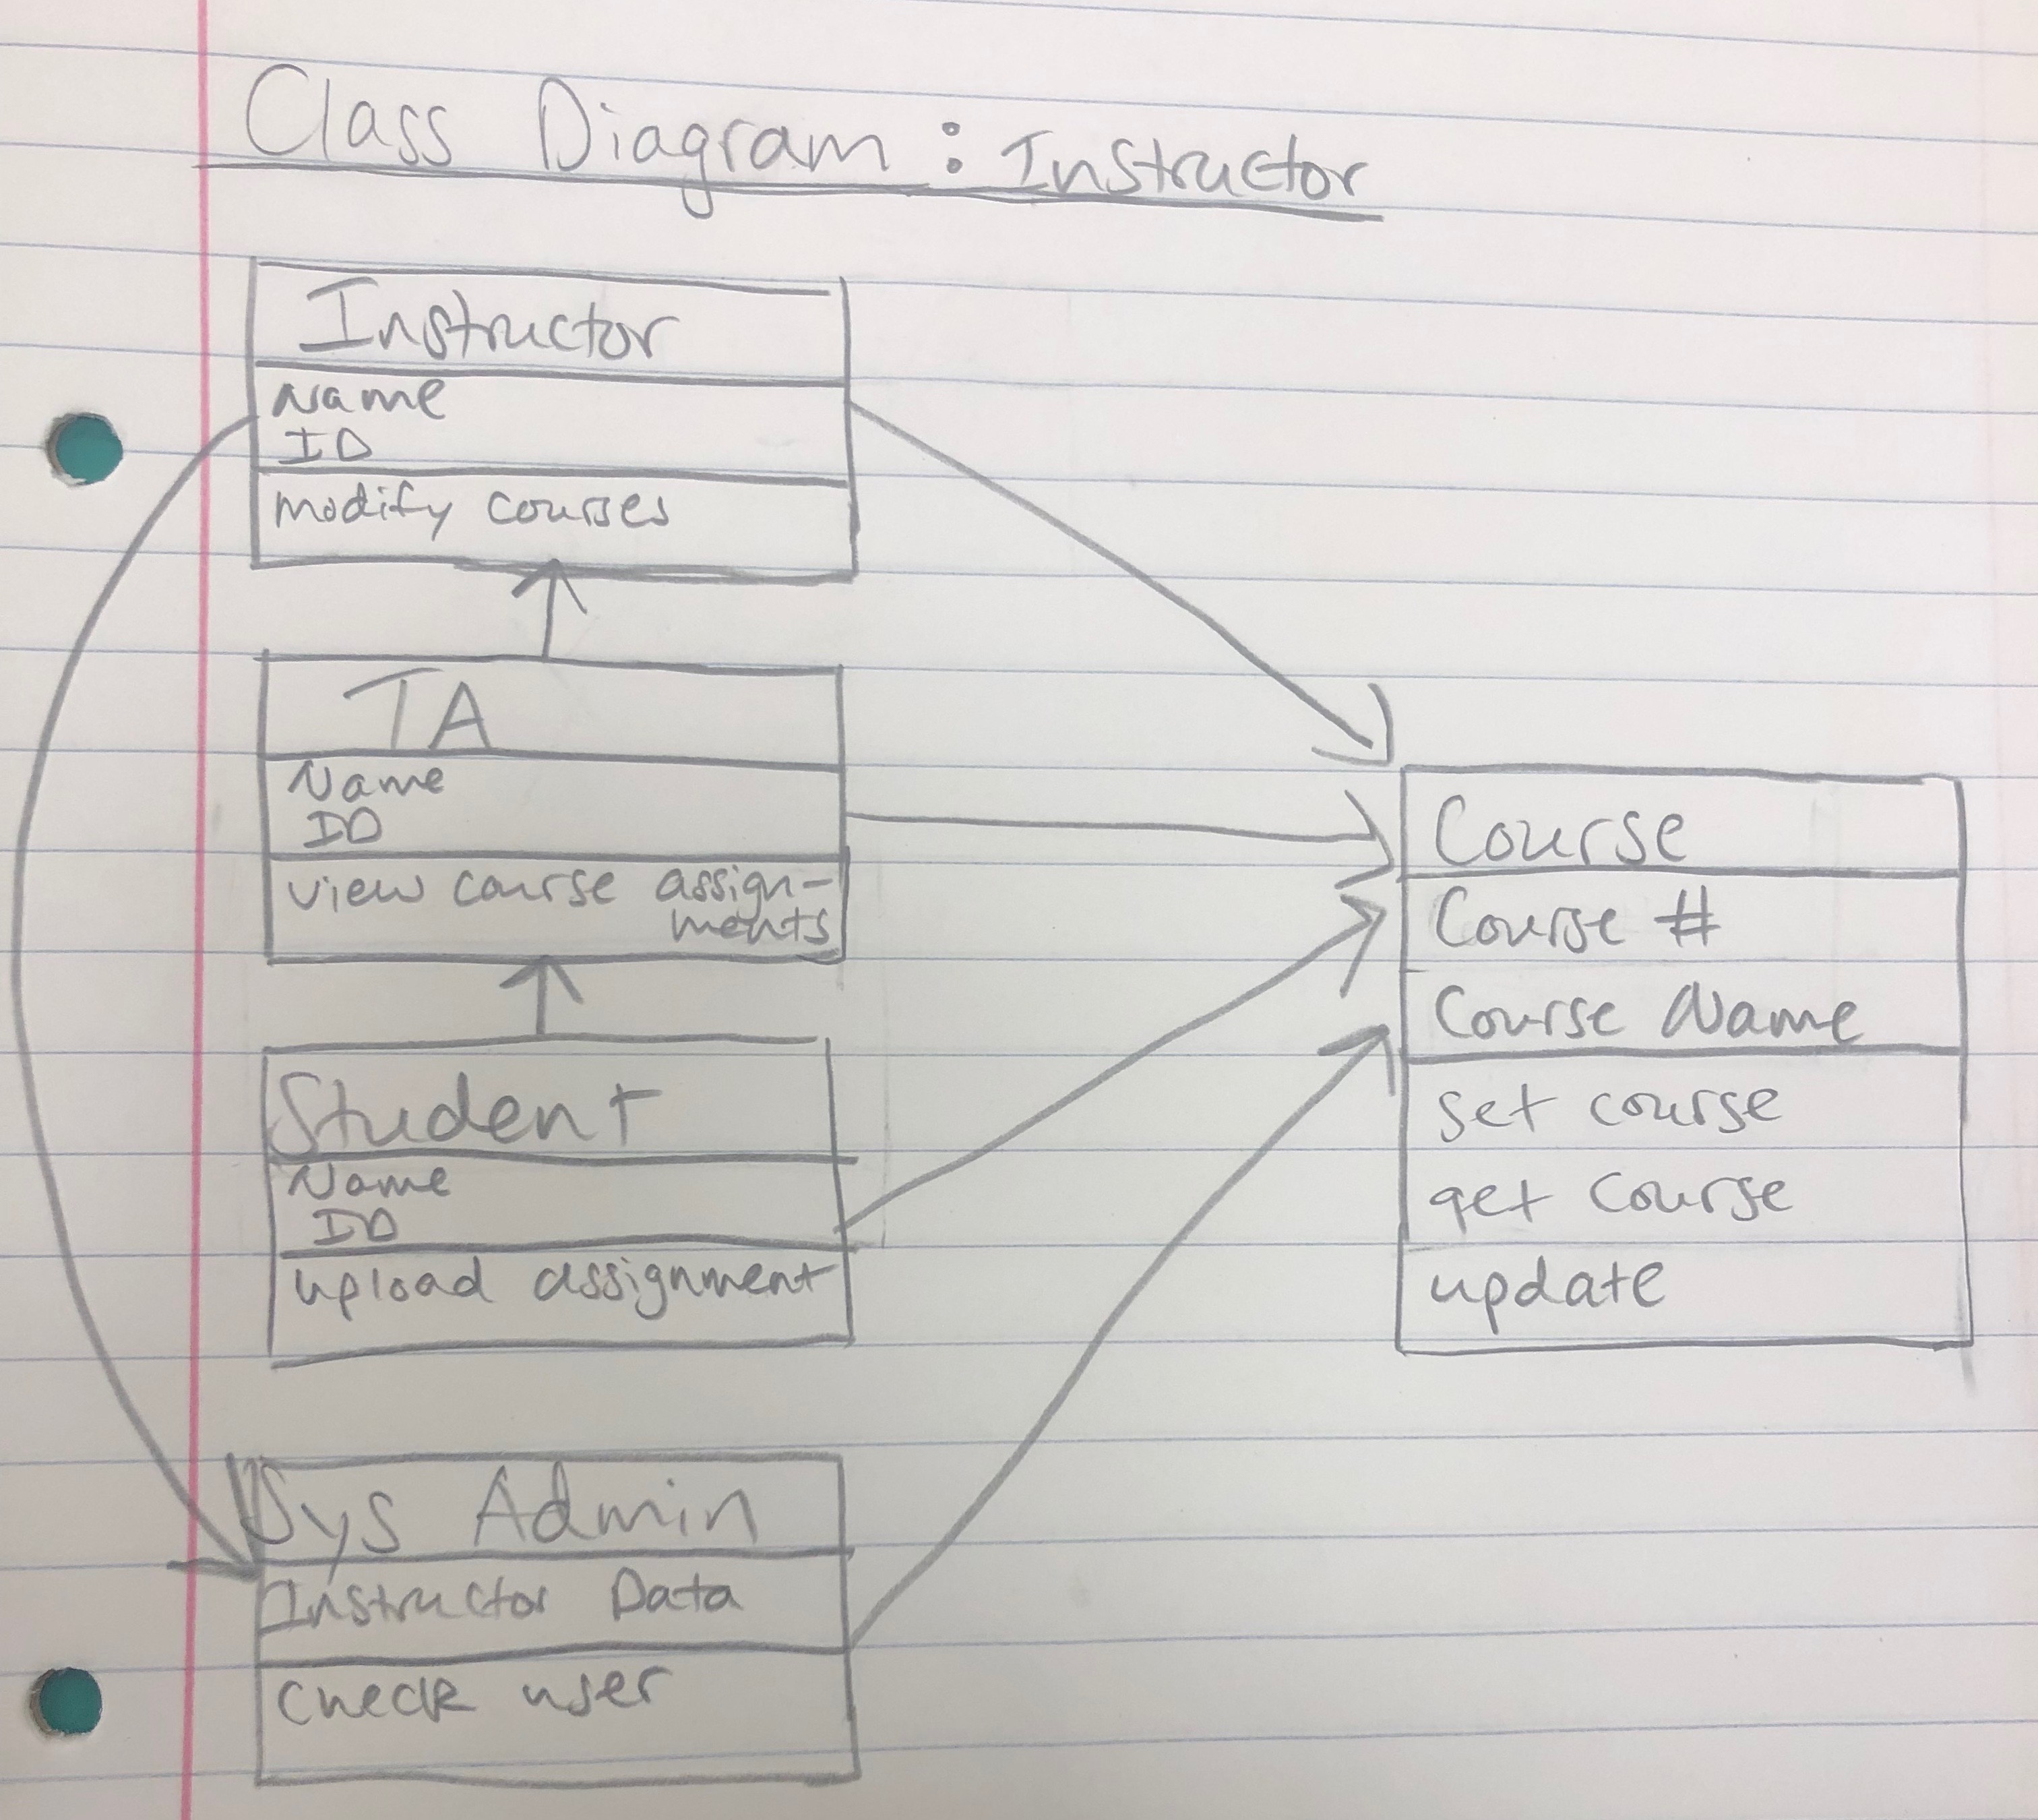 Class Diagram: Instructor
Instructor
Name
ID
modify courses
TA
Name
ID
view course assign-
ments
Student
Name
ID
upload assignment
Sys Admin
Instructor Data
check user
Course
Course #
Course Name
set course
get course
update